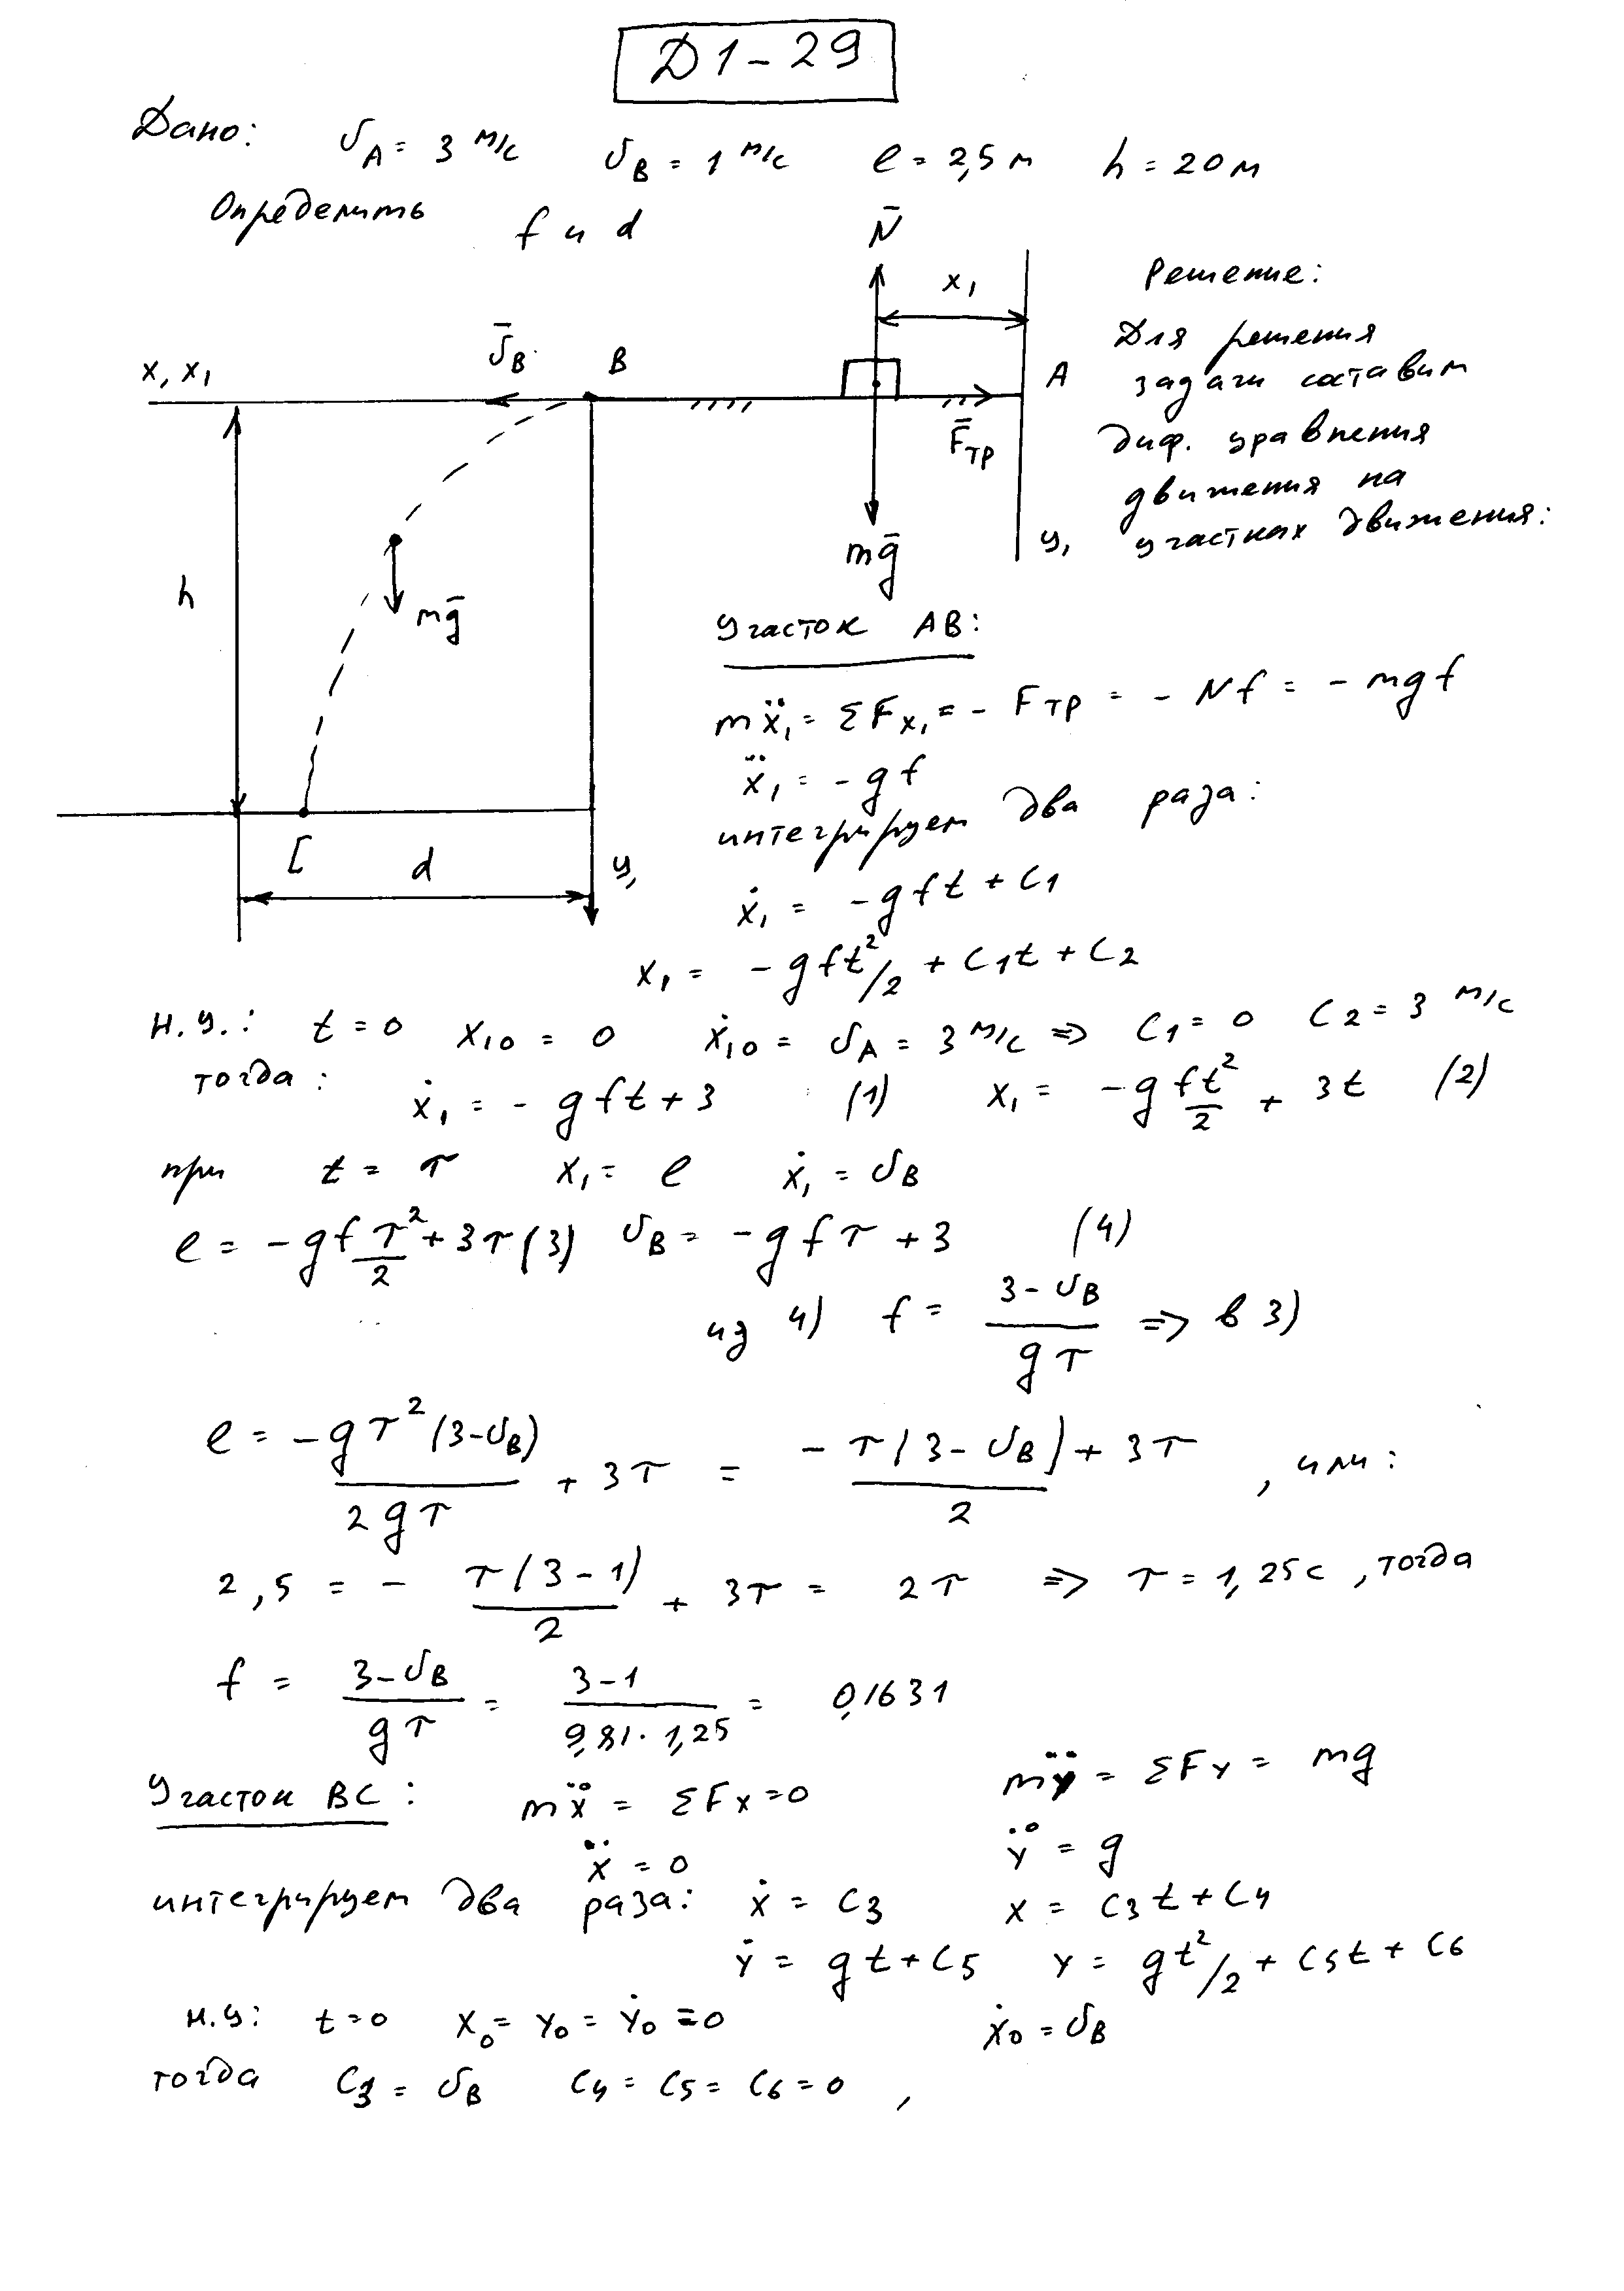 Д1-29
Дано: υA = 3 м/с υB = 1 м/с ℓ = 2,5 м h = 20 м
Определить f и d
N̄
x₁
Решение:
Для решения
задачи составим
диф. уравнения
движения на
участках движения:
x, x₁
ῡB
B
A
F̄тр
mḡ
y₁
h
mḡ
C
d
y,
Участок AB:
mẍ₁ = ΣFx₁ = - Fтр = - Nf = - mgf
ẍ₁ = - gf
интегрируем два раза:
ẋ₁ = - gft + C1
x₁ = - gft²/2 + C1t + C2
н.у.: t = 0 x₁₀ = 0 ẋ₁₀ = υA = 3 м/с => C1 = 0 C2 = 3 м/с
тогда: ẋ₁ = - gft + 3 (1) x₁ = - g ft²/2 + 3t (2)
при t = τ x₁ = ℓ ẋ₁ = υB
ℓ = - gf τ²/2 + 3τ (3) υB = - gfτ + 3 (4)
из 4) f = (3 - υB)/(gτ) => в 3)
ℓ = - gτ²(3-υB)/(2gτ) + 3τ = - τ(3 - υB)/2 + 3τ , или:
2,5 = - τ(3 - 1)/2 + 3τ = 2τ => τ = 1,25с , тогда
f = (3-υB)/(gτ) = (3-1)/(9,81·1,25) = 0,1631
Участок BC: mẍ = ΣFx = 0 mÿ = ΣFy = mg
ẍ = 0 ÿ = g
интегрируем два раза: ẋ = C3 x = C3t + C4
ẏ = gt + C5 y = gt²/2 + C5t + C6
н.у: t = 0 x₀ = y₀ = ẏ₀ = 0 ẋ₀ = υB
тогда C3 = υB C4 = C5 = C6 = 0 ,